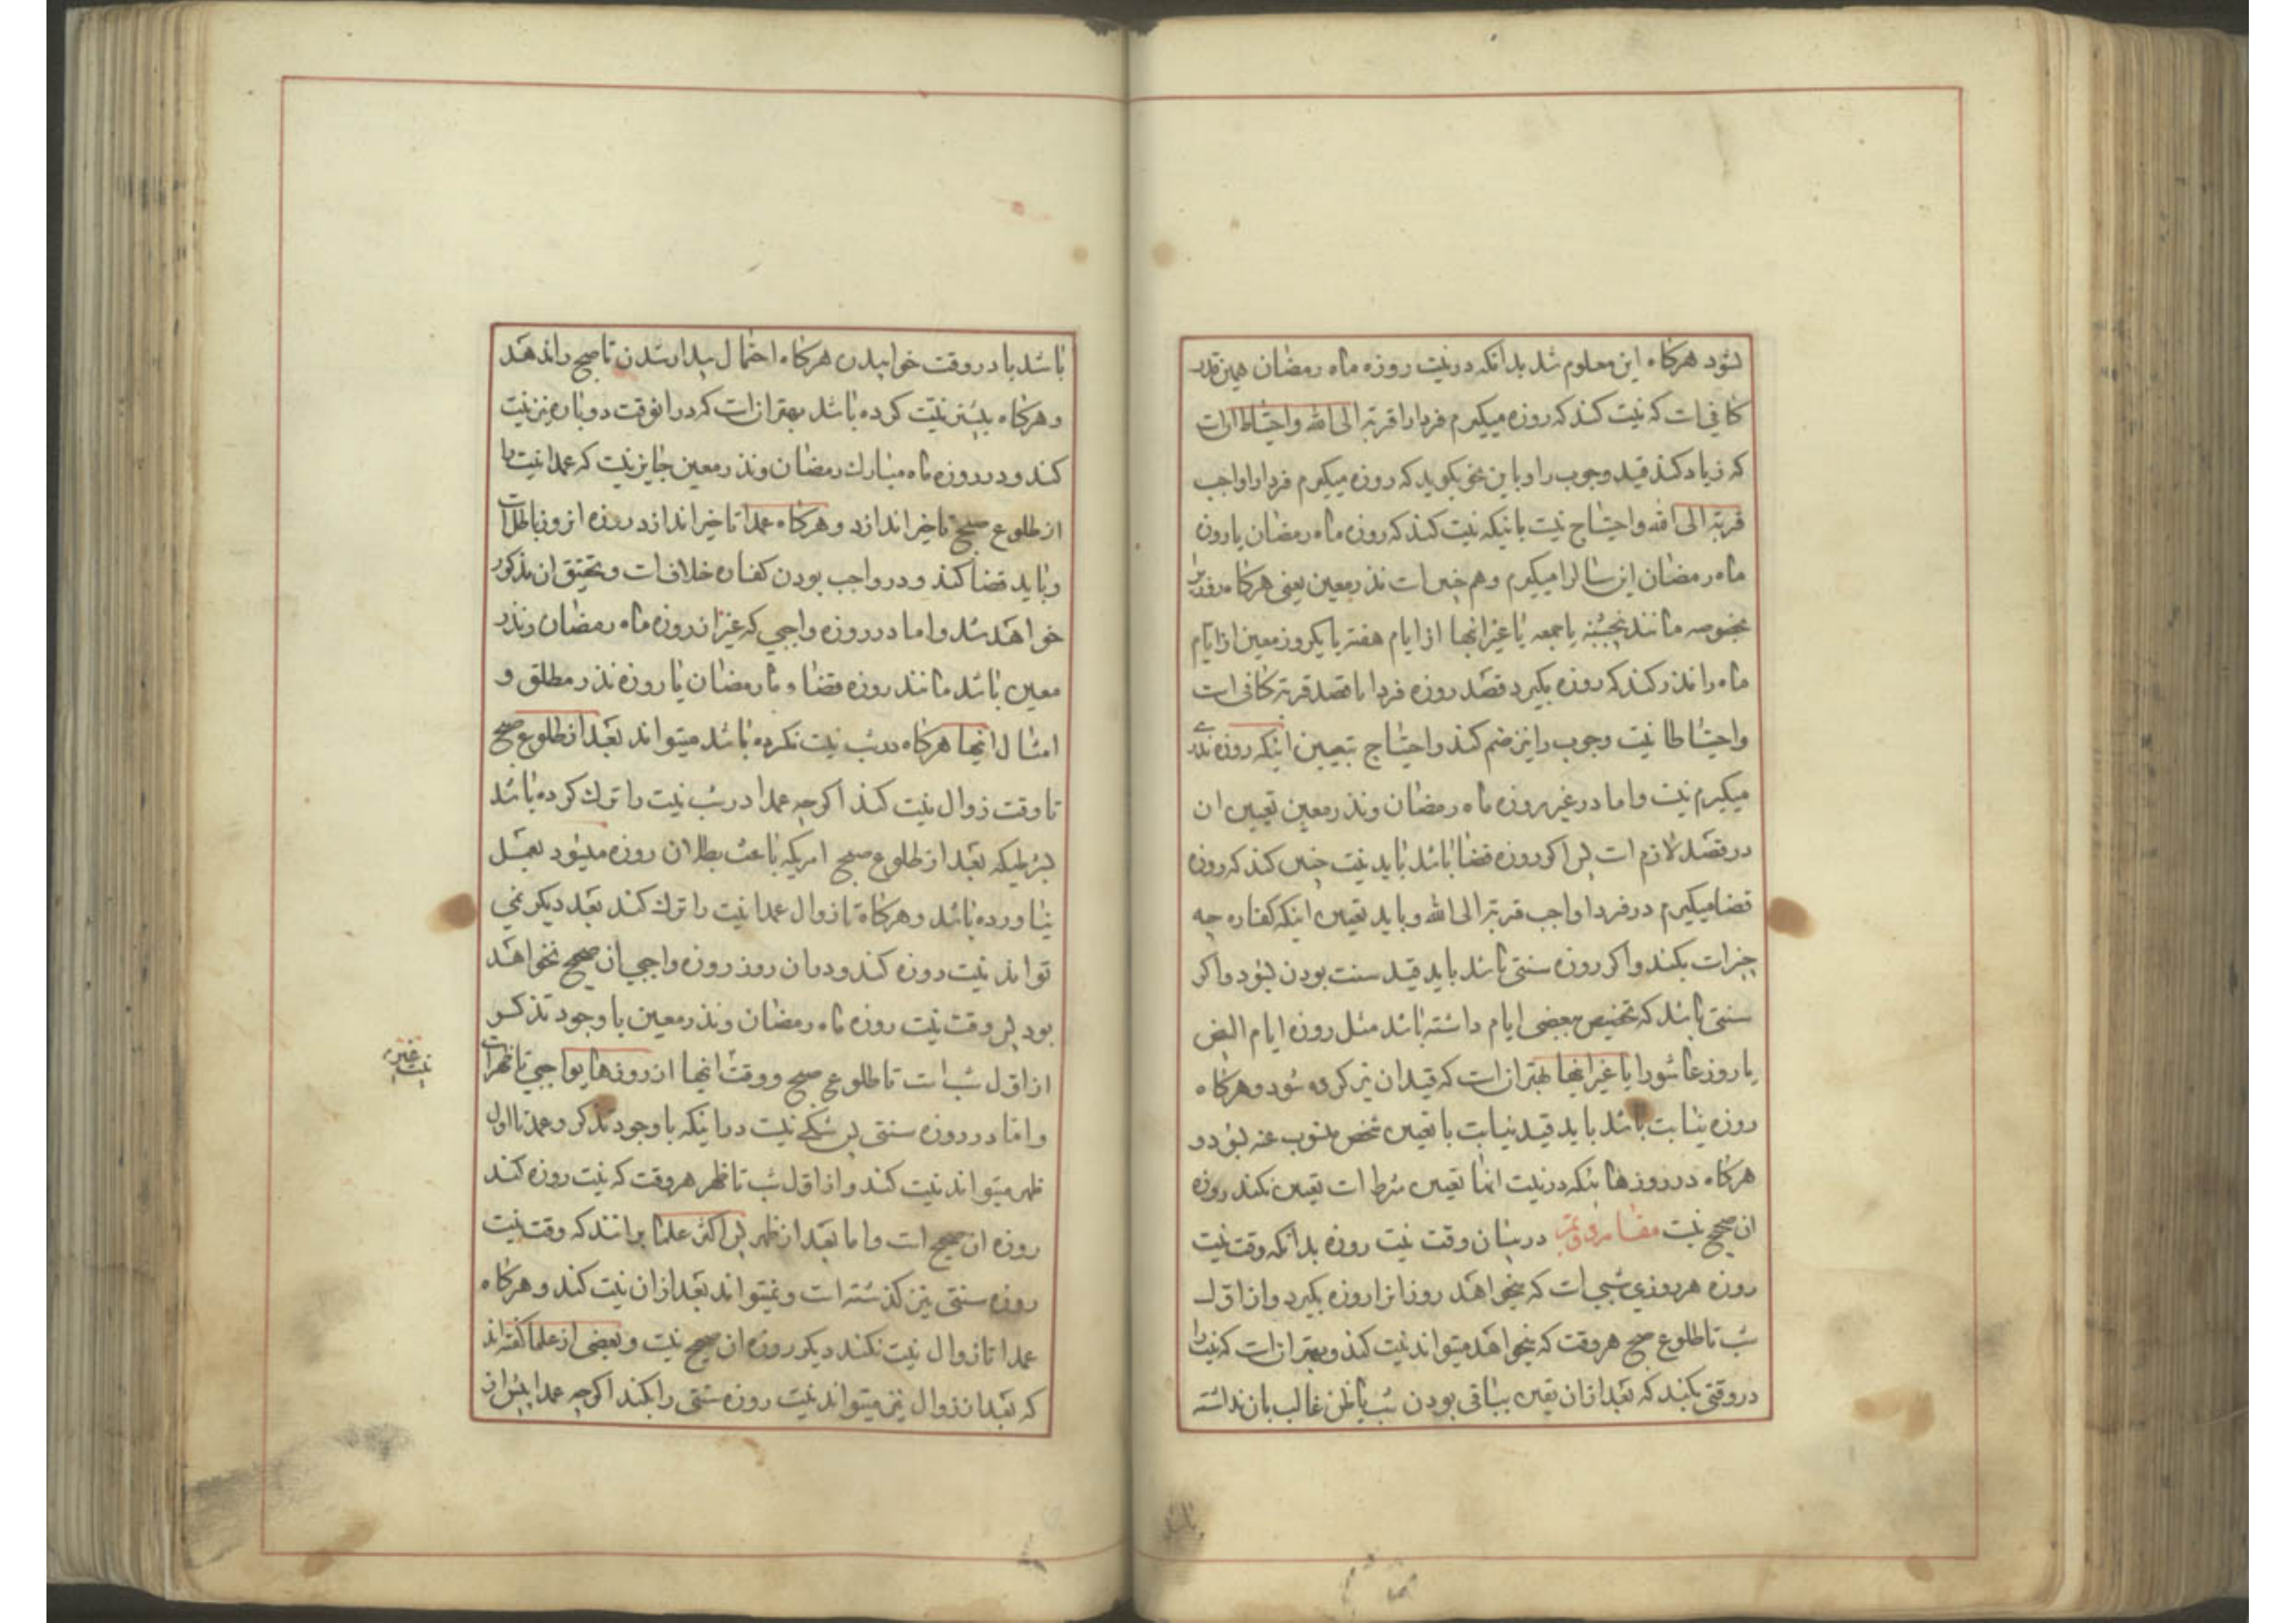 شود هرکاه این معلوم شد بدانکه در نیت روزه ماه رمضان همین قدر
کافی است که نیت کند که روزه میکیرم فردا را قربة الی الله و احتیاط ان است
که زیاد کند قید وجوب را و باین نحو بکوید که روزه میکیرم فردا را واجب
قربة الی الله و احتیاج نیست بانیکه نیت کند که روزه ماه رمضان یا روزه
ماه رمضان این سال را میکیرم و هم چنین است نذر معین یعنی هرکاه روزی
بخصوصه مانند پنجشنبه یا جمعه یا غیر انها از ایام هفته یا یکروز معین از ایام
ماه را نذر کند که روزه بکیرد قصد روزه فردا با قصد قربة کافی است
و احتیاطا نیت وجوب را نیز ضم کند و احتیاج بتعیین اینکه روزه نذر
میکیرم نیست و اما در غیر روزه ماه رمضان و نذر معین تعیین ان
در قصد لازم است پس اکر روزه قضا باشد باید نیت چنین کند که روزه
قضا میکیرم در فردا واجب قربة الی الله و باید تعیین اینکه کفاره چه
چیز است بکند و اکر روزه سنتی باشد باید قید سنت بودن بشود و اکر
سنتی باشد که تخصیص ببعضی ایام داشته باشد مثل روزه ایام البیض
یا روز عاشورا یا غیر انها بهتر ان است که قید ان نیز کرده شود و هرکاه
روزه نیابت باشد باید قید نیابت با تعیین شخص منوب عنه بشود و
هرکاه در روزهائیکه در نیت انها تعیین شرط است تعیین نکند روزه
ان صحیح نیست مقام دویم در بیان وقت نیت روزه بدانکه وقت نیت
روزه هر روزی شبی است که میخواهد روز انرا روزه بکیرد و از اول
شب تا طلوع صبح هر وقت که میخواهد میتواند نیت کند و بهتر ان است که نیت را
در وقتی بکند که بعد از ان یقین بباقی بودن شب یا ظن غالب بان نداشته
باشد
باشد یا در وقت خوابیدن هرکاه احتمال بیدار شدن تا صبح را ندهد
و هرکاه پیشتر نیت کرده باشد بهتر ان است که در انوقت دوباره نیز نیت
کند و در روزه ماه مبارک رمضان و نذر معین جایز نیست که عمدا نیت را
از طلوع صبح تاخیر اندازد و هرکاه عمدا تاخیر اندازد روزه انروز باطل است
و باید قضا کند و در واجب بودن کفاره خلاف است و تحقیق ان مذکور
خواهد شد و اما در روزه واجبی که غیر از روزه ماه رمضان و نذر
معین باشد مانند روزه قضاء ماه رمضان یا روزه نذر مطلق و
امثال انها هرکاه در شب نیت نکرده باشد میتواند بعد از طلوع صبح
تا وقت زوال نیت کند اکرچه عمدا در شب نیت را ترک کرده باشد
بشرطیکه بعد از طلوع صبح امریکه باعث بطلان روزه میشود بعمل
نیاورده باشد و هرکاه تا زوال عمدا نیت را ترک کند بعد دیکر نمی
تواند نیت روزه کند و در ان روز روزه واجبی ان صحیح نخواهد
بود پس وقت نیت روزه ماه رمضان و نذر معین با وجود تذکر
از اول شب است تا طلوع صبح و وقت انها از روزهای واجبی تا ظهر است
و اما در روزه سنتی پس شکی نیست در اینکه با وجود تذکر و عمد تا اول
ظهر میتواند نیت کند و از اول شب تا ظهر هر وقت که نیت روزه کند
روزه ان صحیح است و اما بعد از ظهر پس اکثر علما برانند که وقت نیت
روزه سنتی نیز کذشته است و نمیتواند بعد از ان نیت کند و هرکاه
عمدا تا زوال نیت نکند دیکر روزه ان صحیح نیست و بعضی از علما کفته اند
که بعد از زوال نیز میتواند نیت روزه سنتی را بکند اکرچه عمدا پیش از